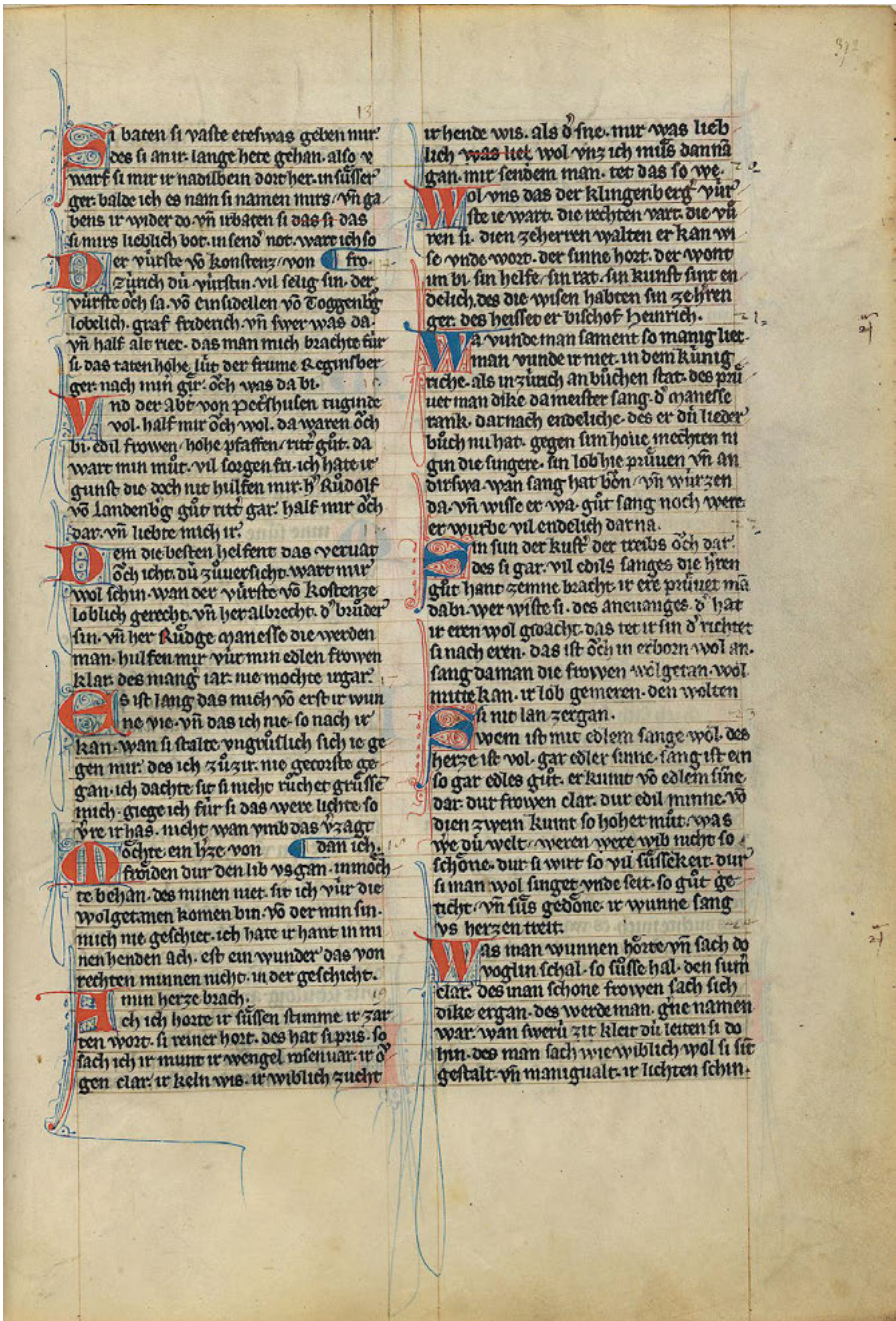 372
13
Si baten si vaste etefwas geben mir.
des si an ir. lange hete gehan. also v̾
warf si mir ir nadilbein dort her. in sůsser
ger. balde ich es nam si namen mirs. vn̄ ga
bens ir wider do vn̄ irbaten si das si das
si mirs lieblich bot. in send̾ not. wart ich so
Der vúrste vō konstenz. von ¶ fro.
Zúrich dú vúrstin. vil selig sin. der
vúrste ǒch sa. vō einsidellen vō Toggenb̾g
lobelich. graf friderich. vn̄ swer was da.
vn̄ half alt riet. das man mich brachte fúr
si. das taten hohe lút der frume Reginsber
ger. nach min gir. ǒch was da bi.
Vnd der abt von Pet̾shusen tuginde
vol. half mir ǒch wol. da waren ǒch
bi. edil frowen. hohe pfaffen. ritt̾ gůt. da
wart min můt. vil sorgen fri. ich hate ir
gunst die doch nit hulfen mir. h̾ Růdolf
vō Landenb̾g gůt ritt̾ gar. half mir ǒch
dar. vn̄ liebte mich ir.
Dem die besten helfent das veruat
ǒch icht. dú zůversicht. wart mir
wol schin. wan der vúrste vō kostenze
loblich gerecht. vn̄ her albrecht. d̾ brůder
sin. vn̄ her Růdge Manesse die werden
man. hulfen mir vúr min edlen frowen
klar. des mang̾ iar. nie mochte irgar.
Es ist lang das mich vō erst ir wun
ne vie. vn̄ das ich nie. so nach ir
kan. wan si stalte vngrůslich sich ie ge
gen mir. des ich zů zir. nie getorste ge
gan. ich dachte sit si nicht růchet grůssē
mich. giege ich fúr si das were lichte so
v̾re ir has. nicht wan vmb das v̾zagt
Mǒchte ein h̾ze von ¶ dan ich.
frǒiden dur den lib vs gan. in mǒch
te behan. des minen niet. sit ich vúr die
wolgetanen komen bin. vō der min sin.
mich nie geschiet. ich hate ir hant in mi
nen henden ach. est ein wunder das von
rechten minnen nicht. in der geschicht.
min herze brach.
Ach ich horte ir sůssen stimme. ir zar
ten wort. si reiner hort. des hat si pris. so
sach ich ir munt ir wengel rosenuar. ir ǒ
gen clar. ir keln wis. ir wiblich zucht
ir hende wis. als d̾ sne. mir was lieb
lich was liet wol vnz ich můs dannā
gan. mir sendem man. tet das so we.
Wol vns das der klingenberg vúr
ste ie wart. die rechten vart. die vů
ren si. dien zeherren walten er kan wi
se vnde wort. der sinne hort. der wont
im bi. sin helfe. sin rat. sin kunst sint en
delich. des die wisen habten sin zehren
ger. des heisset er bischof Heinrich.
Wa vunde man sament so manig liet.
man vunde ir niet. in dem kúnig
riche. als in zúrich an bůchen stat. des prů
uet man dike da meister sang. d̾ Manesse
rank. dar nach endeliche. des er dú lieder
bůch nu hat. gegen sim houe mechten ni
gin die singere. sin lob hie průuen vn̄ an
dirswa. wan sang hat bǒn. vn̄ wúrzen
da. vn̄ wisse er wa. gůt sang noch were.
er wurbe vil endelich dar na.
Sin sun der kust̾ der treibs ǒch dar.
des si gar. vil edils sanges die h̾ren
gůt hant zemne bracht. ir ere průuet mā
da bi. wer wiste si. des aneuanges. d̾ hat
ir eren wol gdacht. das tet ir sin d̾ richtet
si nach eren. das ist ǒch in erborn wol an.
sang da man die frowen wolgetan. wol
mitte kan. ir lob gemeren. den wolten
si nit lan zergan.
Swem ist mit edlem sange wol. des
herze ist vol. gar edler sinne. sang ist ein
so gar edles gůt. er kumt vō edlem sine
dar. dur frowen clar. dur edil minne. vō
dien zwein kumt so hoher můt. was
we dú welt. weren were wib nicht so
schǒne. dur si wirt so vil sůssekeit. dur
si man wol singet vnde seit. so gůt ge
ticht. vn̄ sůs gedǒne. ir wunne sang
vs herzen treit.
Was man wunnen hǒrte vn̄ sach do
voglin schal. so sůsse hal. den sum̾
clar. des man schone frowen sach sich
dike ergan. des werde man. g̾ne namen
war. wan swerú zit kleit dú leiten si do
hin. des man sach wie wiblich wol si sit
gestalt. vn̄ manigualt. ir liechten schin.